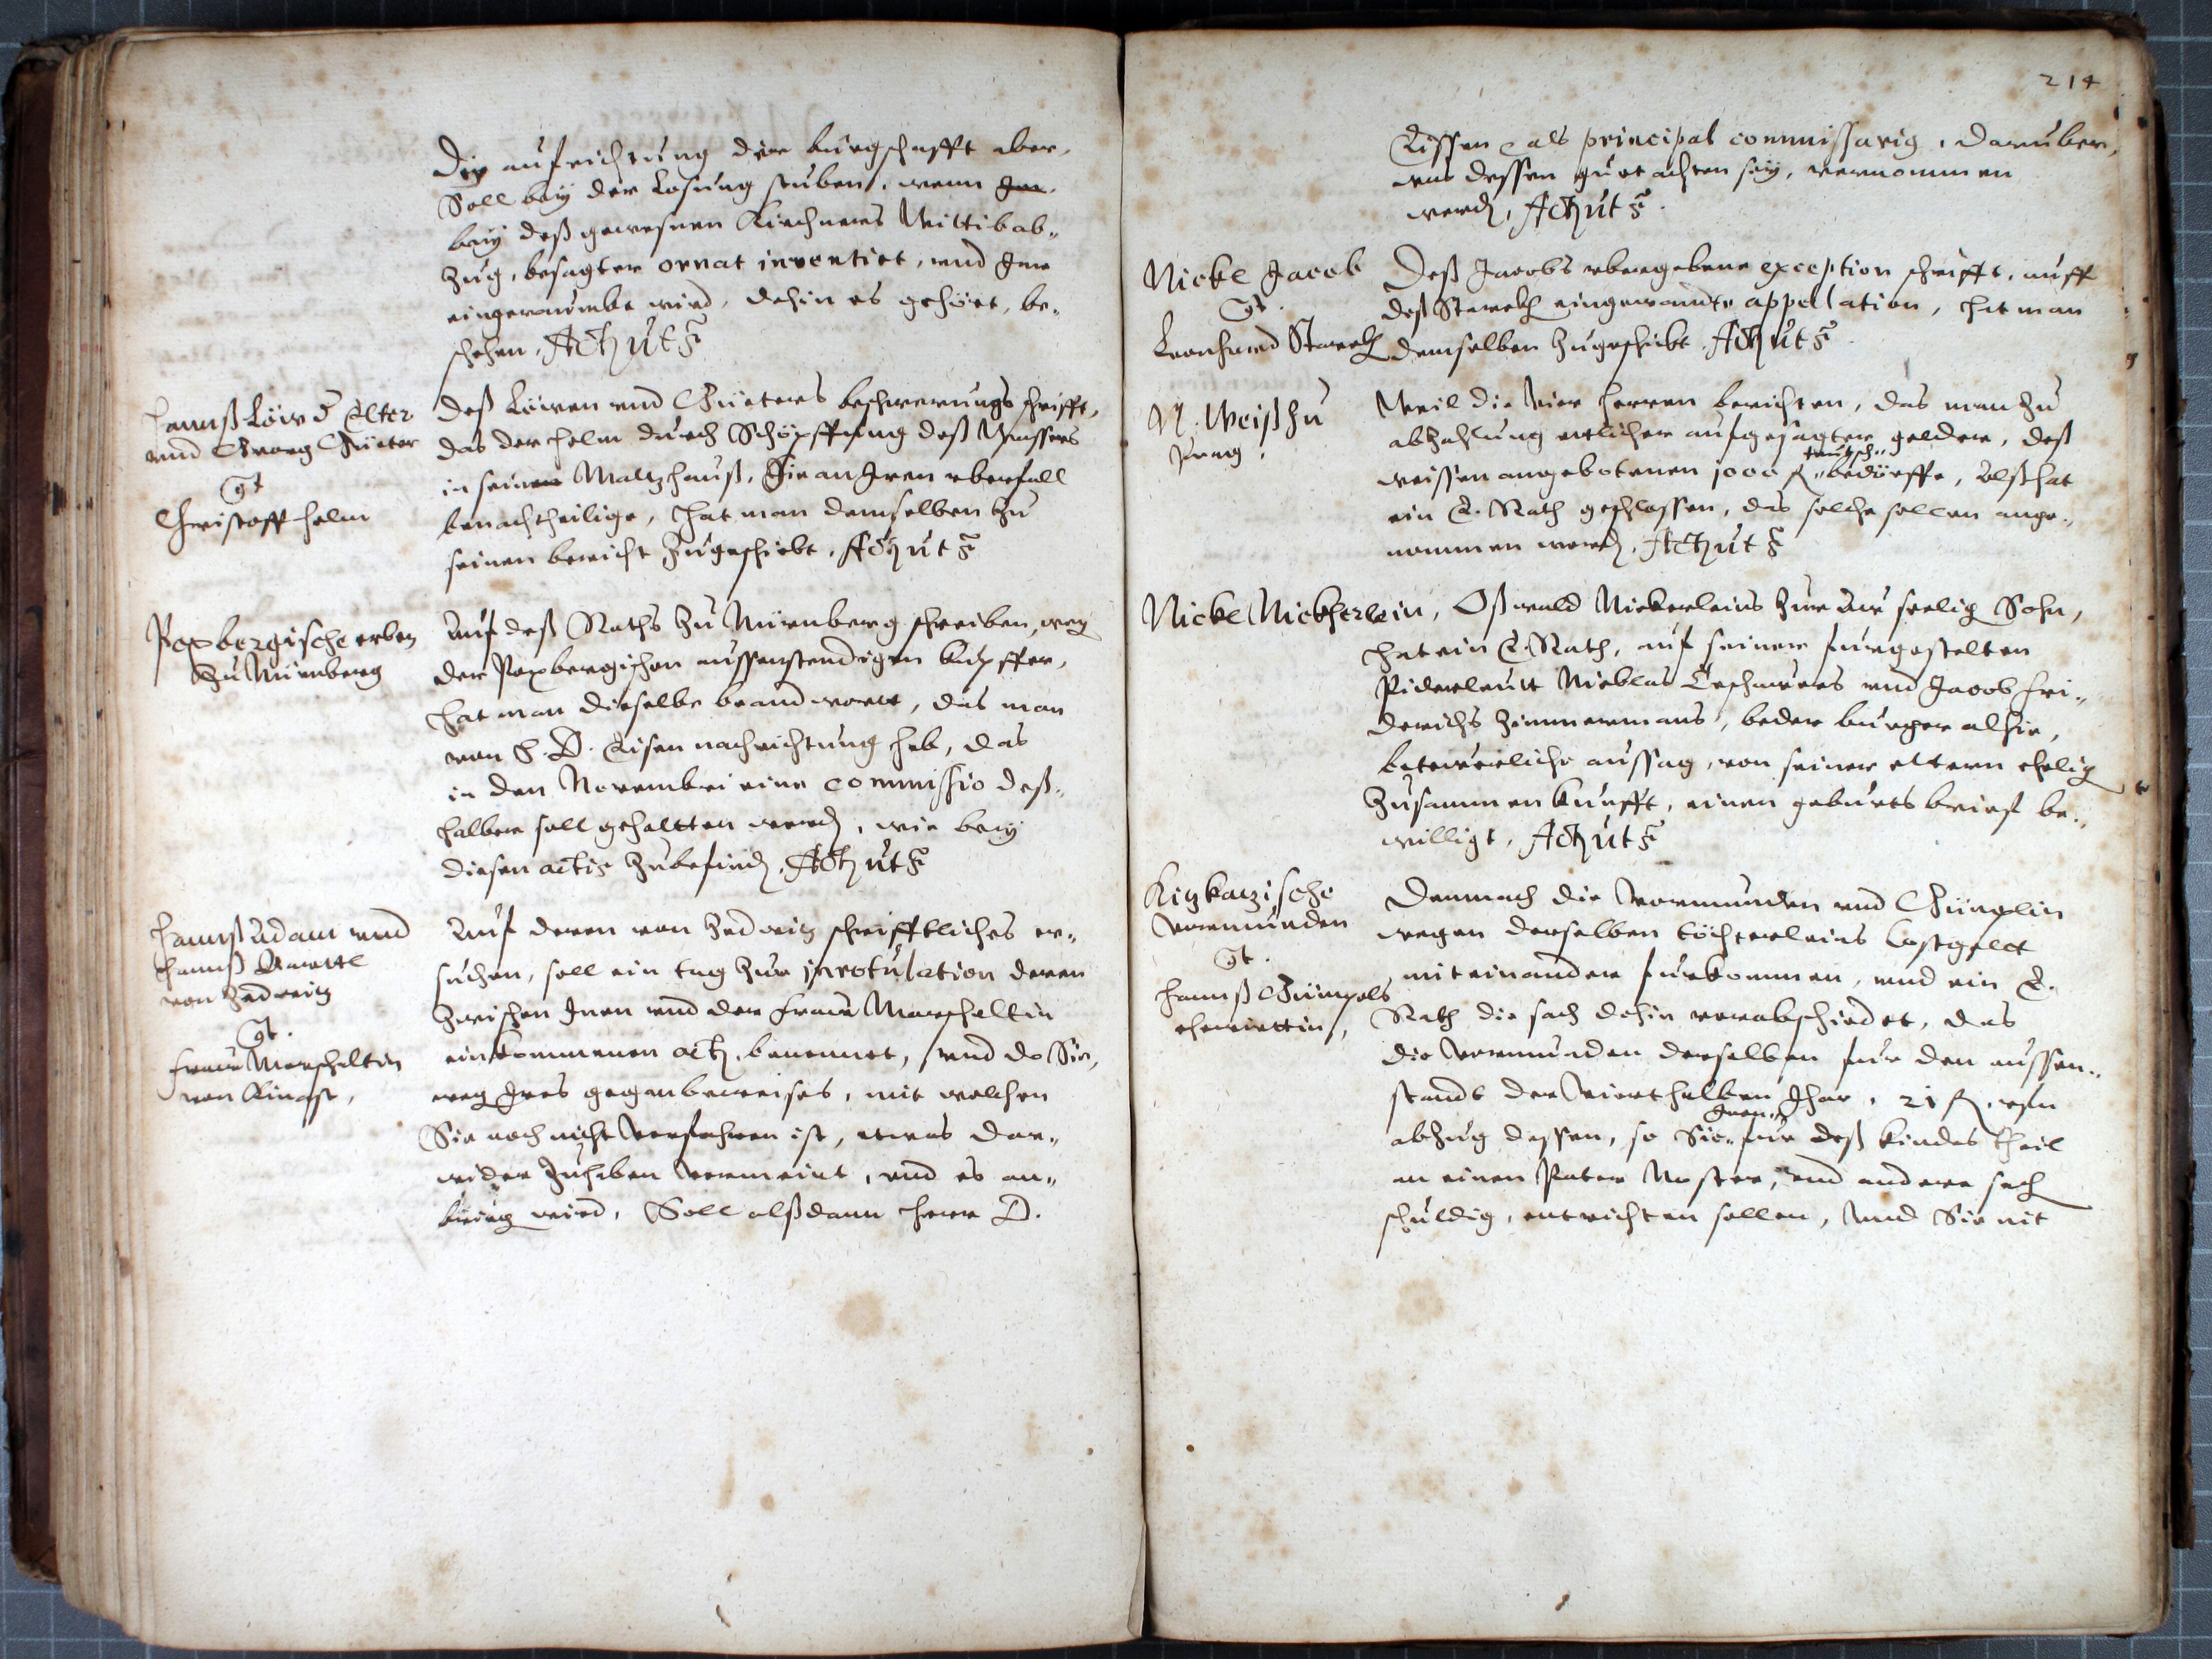 Die aufrichtung der burgschafft aber,
Soll bey der Losung stuben, wenn
bey deß gewesnen Kirchners Wittib ab„
zug, besagter ornat inventirt, und Ime
eingeraumbt wird, dahin es gehört, be„
schehen, Act ut s
Hannß Löw d Elter
und Georg Güeter
gt
Christoff Helm
Deß Löwen und Güeters beschwerungs schrifft,
das der Helm durch Schöpffung deß Wassers
in seinem Maltzhauß, Sie an Irem uberfall
benachtheilige, hat man demselben zu
seinen bericht zugeschickt. Act ut s
Poxbergische erben
zu Nürnberg
Auf deß Raths zu Nürnberg schreiben, weg
der Poxbergischen aussenstendigen kupffer,
hat man dieselbe beandwortt, das man
von H. D. Eisen nachrichtung hab, das
in den Novembri eine commissio deß„
halben soll gehaltten werd, wie bey
diesen actis zubefind. Act ut s
Hannß Adam und
Hannß
von Zedwitz
gt.
Fraw Marschaltin
von
Auf deren von Zedwitz schrifftliches er„
suchen, soll ein tag zur inrotulation deren
zwischen Inen und der Fraw Marschaltin
einkommenen act, benennet, und do Sie,
weg Ires gegenbeweises, mit welchen
Sie noch nicht verfahren ist, etwas dar„
wider zuhaben vermeint, und es an„
bring wird, Soll alßdann Herr D.
214
Eissen als principal commissarig, darüber,
was dessen gut achten sey, vernommen
werd, Act ut s.
Nickl Jacob
gt.
Leonhard Starck
Deß Jacobs ubergebene exception schrifft, auff
deß Starck eingewandte appellation, hat man
demselben zugeschickt. Act ut s.
N. Weiß zu
Prag.
Weil die Vier Herren berichten, das man zu
abzahlung ettlicher aufgesagter gelder, deß
weissen angebotenen 1000 f. bedörffe, Alß hat
ein E. Rath geschlossen, das solche sollen ange„
nommen werd. Act ut s
Nickl Nickherlein,
Oßwald Nickerleins zur Aw seelig Sohn,
hat ein E. Rath, auf seiner furgestelten
Piderleutt Nicklas und Jacob Fri„
derichs Zimmermans, beder burger alhie,
aussag, von seiner eltern ehelig
zusammen kunfft, einen geburts brief be„
willigt, Act ut s
vormunden
gt.
Hannß Gümpels
ehewirttin,
Demnach die Vormunden und
wegen derselben töchterleins Costgeltt
mit einander furkommen, und ein E.
Rath die sach dahin verabschiedet, das
die Vormunden derselben fur den aussen„
standt der Vierthalben Jhar, 21 f.
abzug dessen, so Sie Inen fur deß kindes theil
an einen Pater Noster, und andern sach
schuldig, entrichten sollen, und Sie nit